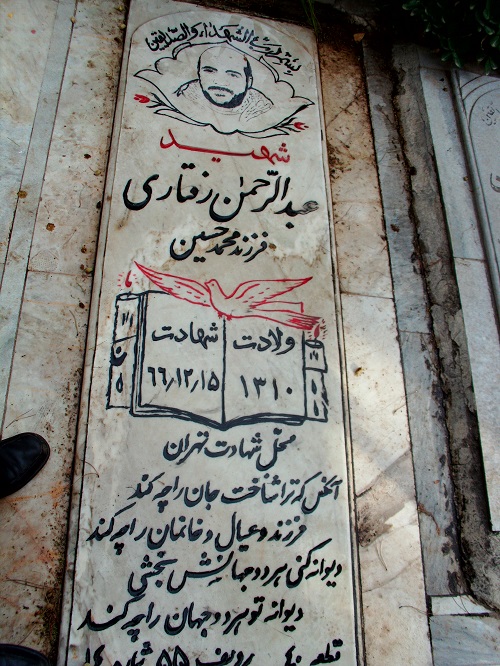 بسم رب الشهداء و الصدیقین
شهید
عبدالرحمن رفتاری
فرزند محمد حسین
ولادت
۱۳۱۰
شهادت
۶۶/۱۲/۱۵
محل شهادت تهران
آنکس که ترا شناخت جان را چه کند
فرزند و عیال و خانمان را چه کند
دیوانه کنی هر دو جهانش بخشی
دیوانه تو هر دو جهان را چه کند
قطعه ۴۰ ردیف ۵۵ شماره